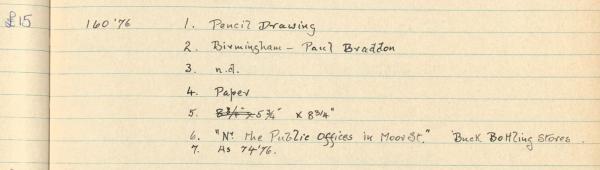 £15 160'76 1. Pencil Drawing
2. Birmingham - Paul Braddon
3. n.d.
4. Paper
5. 8 3/4" x 5 3/4" x 8 3/4"
6. "Nr. the Public Offices in Moor St." Buck Bottling Stores.
7. As 74'76.